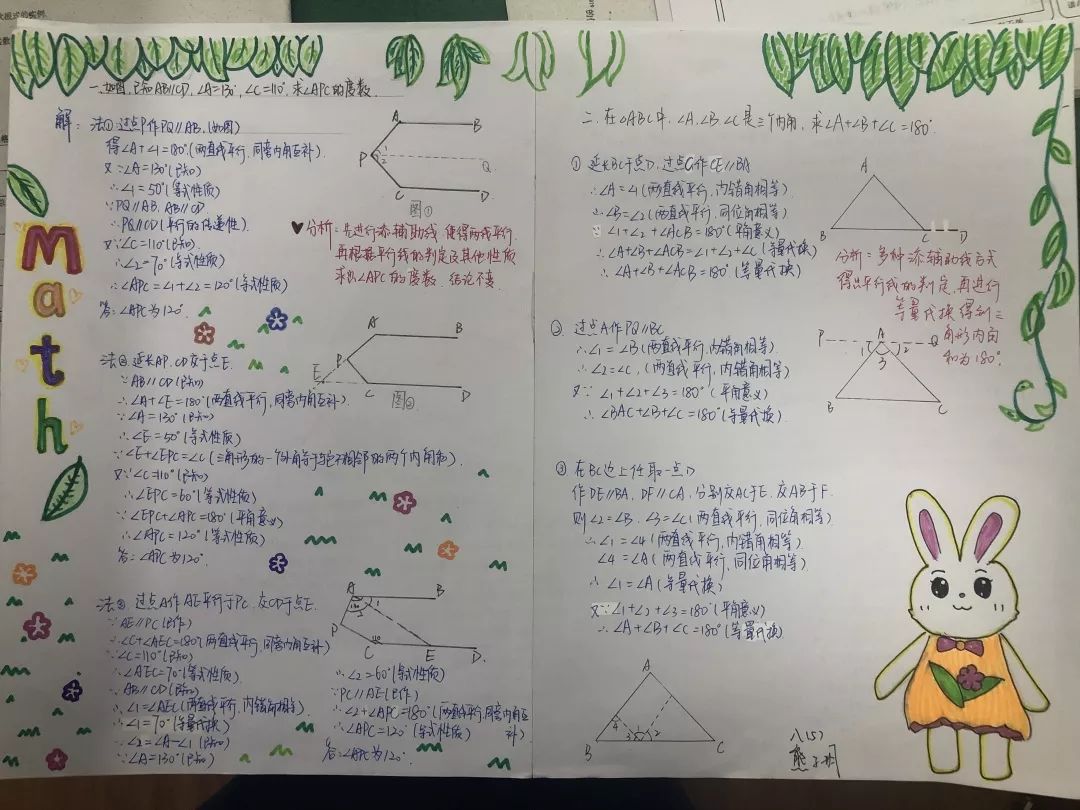 Math
一、如图,已知AB∥CD,∠A=130°,∠C=110°,求∠APC的度数.
解:法①过点P作PQ∥AB.(如图)
得∠A+∠1=180°(两直线平行,同旁内角互补)
又∵∠A=130°(已知)
∴∠1=50°(等式性质)
∵PQ∥AB,AB∥CD
∴PQ∥CD(平行的传递性)
又∵∠C=110°(已知)
∴∠2=70°(等式性质)
∴∠APC=∠1+∠2=120°(等式性质)
答:∠APC为120°.
A B
P 1 2 Q
C D
图①
分析:先进行添辅助线,使得两线平行,
再根据平行线的判定及其他性质
求出∠APC的度数.结论不变.
法②延长AP、CD交于点E.
∵AB∥CD(已知)
∴∠A+∠E=180°(两直线平行,同旁内角互补).
∵∠A=130°(已知)
∴∠E=50°(等式性质)
∵∠E+∠EPC=∠C(三角形的一个外角等于与它不相邻的两个内角和).
又∵∠C=110°(已知)
∴∠EPC=60°(等式性质)
∵∠EPC+∠APC=180°(平角意义)
∴∠APC=120°(等式性质)
答:∠APC为120°.
A B
P
E C D
图②
法③ 过点A作AE平行于PC,交CD于点E.
∵AE∥PC(已作)
∴∠C+∠AEC=180°(两直线平行,同旁内角互补)
∵∠C=110°(已知)
∴∠AEC=70°(等式性质)
∵AB∥CD(已知)
∴∠1=∠AEC(两直线平行,内错角相等)
∴∠1=70°(等量代换)
∵∠2=∠A-∠1(已知)
∵∠A=130°(已知)
A B
1
P
110
C E D.
∴∠2=60°(等式性质)
∵PC∥AE(已作)
∴∠2+∠APC=180°(两直线平行,同旁内角互
补)
∴∠APC=120°(等式性质)
答:∠APC为120°.
二、在△ABC中,∠A、∠B、∠C是三个内角,求∠A+∠B+∠C=180°.
① 延长BC于点D,过点C作CE∥BA
∴∠A=∠1(两直线平行,内错角相等)
∴∠B=∠2(两直线平行,同位角相等)
∵∠1+∠2+∠ACB=180°(平角意义)
∴∠A+∠B+∠ACB=∠1+∠2+∠C(等量代换)
∴∠A+∠B+∠ACB=180°(等量代换)
A
B C D
分析:多种添辅助线方式
得出平行线的判定,再进行
等量代换得到三
角形内角
和为180°.
② 过点A作PQ∥BC
∴∠1=∠B(两直线平行,内错角相等).
∴∠2=∠C,(两直线平行,内错角相等)
又∵∠1+∠2+∠3=180°(平角意义)
∴∠BAC+∠B+∠C=180°(等量代换)
P A Q
1 3 2
B C
③ 在BC边上任取一点D
作DE∥BA,DF∥CA,分别交AC于E,交AB于F.
则∠2=∠B,∠3=∠C(两直线平行,同位角相等)
∴∠1=∠4(两直线平行,内错角相等)
∠4=∠A(两直线平行,同位角相等)
∴∠1=∠A(等量代换)
又∵∠1+∠2+∠3=180°(平角意义)
∴∠A+∠B+∠C=180°(等量代换)
A
4
3 1 2
B C
八(5)